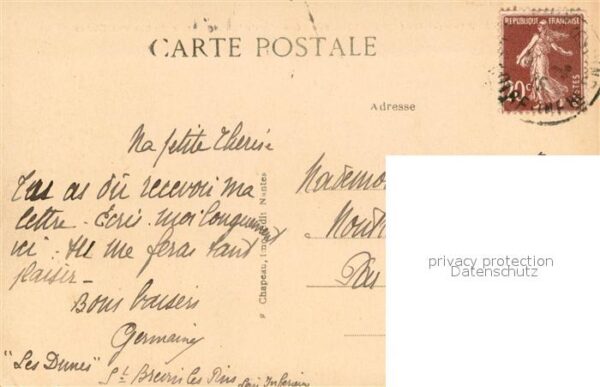 CARTE POSTALE
REPUBLIQUE FRANÇAISE
20c POSTES
Adresse
Ma petite Thérèse
Tu as dû recevoir ma
lettre - Écris moi longuement
ici - tu me feras tant
plaisir -
Bons baisers
Germaine
"Les Dunes"
St Brévin les Pins
Loire Inférieure
Chapeau, imp. édit. Nantes
Mademoi
Pas
privacy protection
Datenschutz